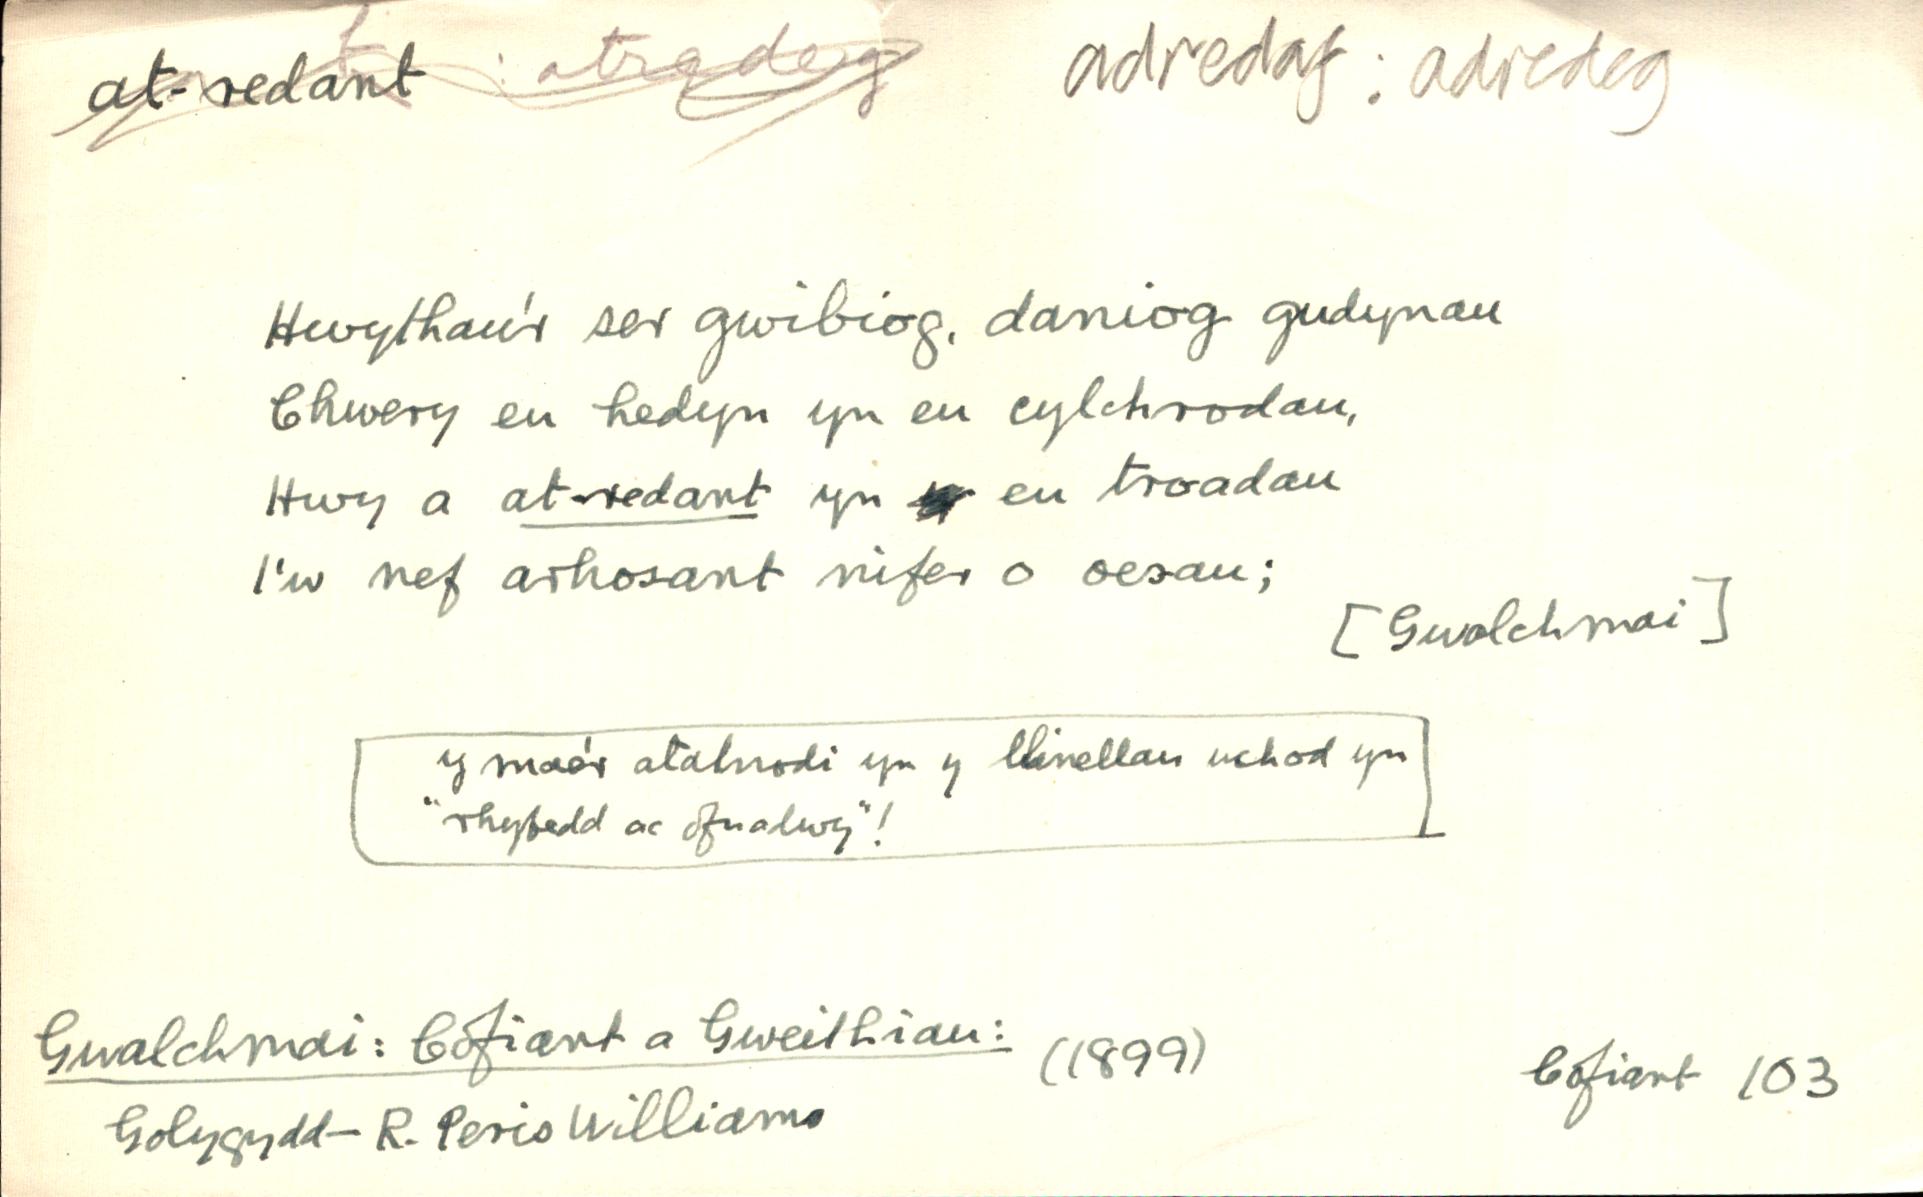 at-redant : atredeg adredaf : adredeg
Hwythau'r ser gwibiog, daniog gudynau
Chwery eu hedyn yn eu cylchrodau,
Hwy a at-redant yn eu troadau
I'w nef arhosant nifer o oesau;
[Gwalchmai]
y mae'r atalnodi yn y llinellau uchod yn
"rhyfedd ac ofnadwy"!
Gwalchmai: Cofiant a Gweithiau: (1899) Cofiant 103
Golygydd— R. Peris Williams